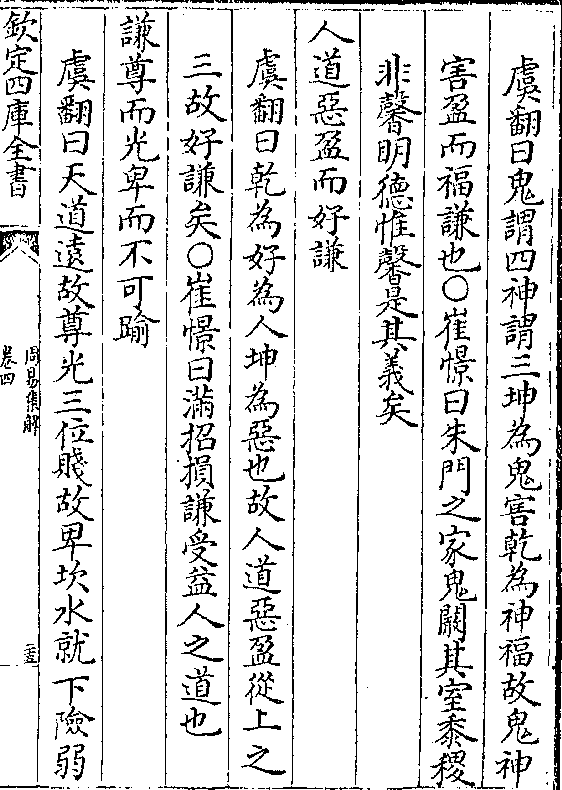 虞翻曰鬼謂四神謂三坤為鬼害乾為神福故鬼神
害盈而福謙也○崔憬曰朱門之家鬼闞其室黍稷
非馨明德惟馨是其義矣
人道惡盈而好謙
虞翻曰乾為好為人坤為惡也故人道惡盈從上之
三故好謙矣○崔憬曰滿招損謙受益人之道也
謙尊而光卑而不可踰
虞翻曰天道遠故尊光三位賤故卑坎水就下險弱
欽定四庫全書
周易集解
卷四